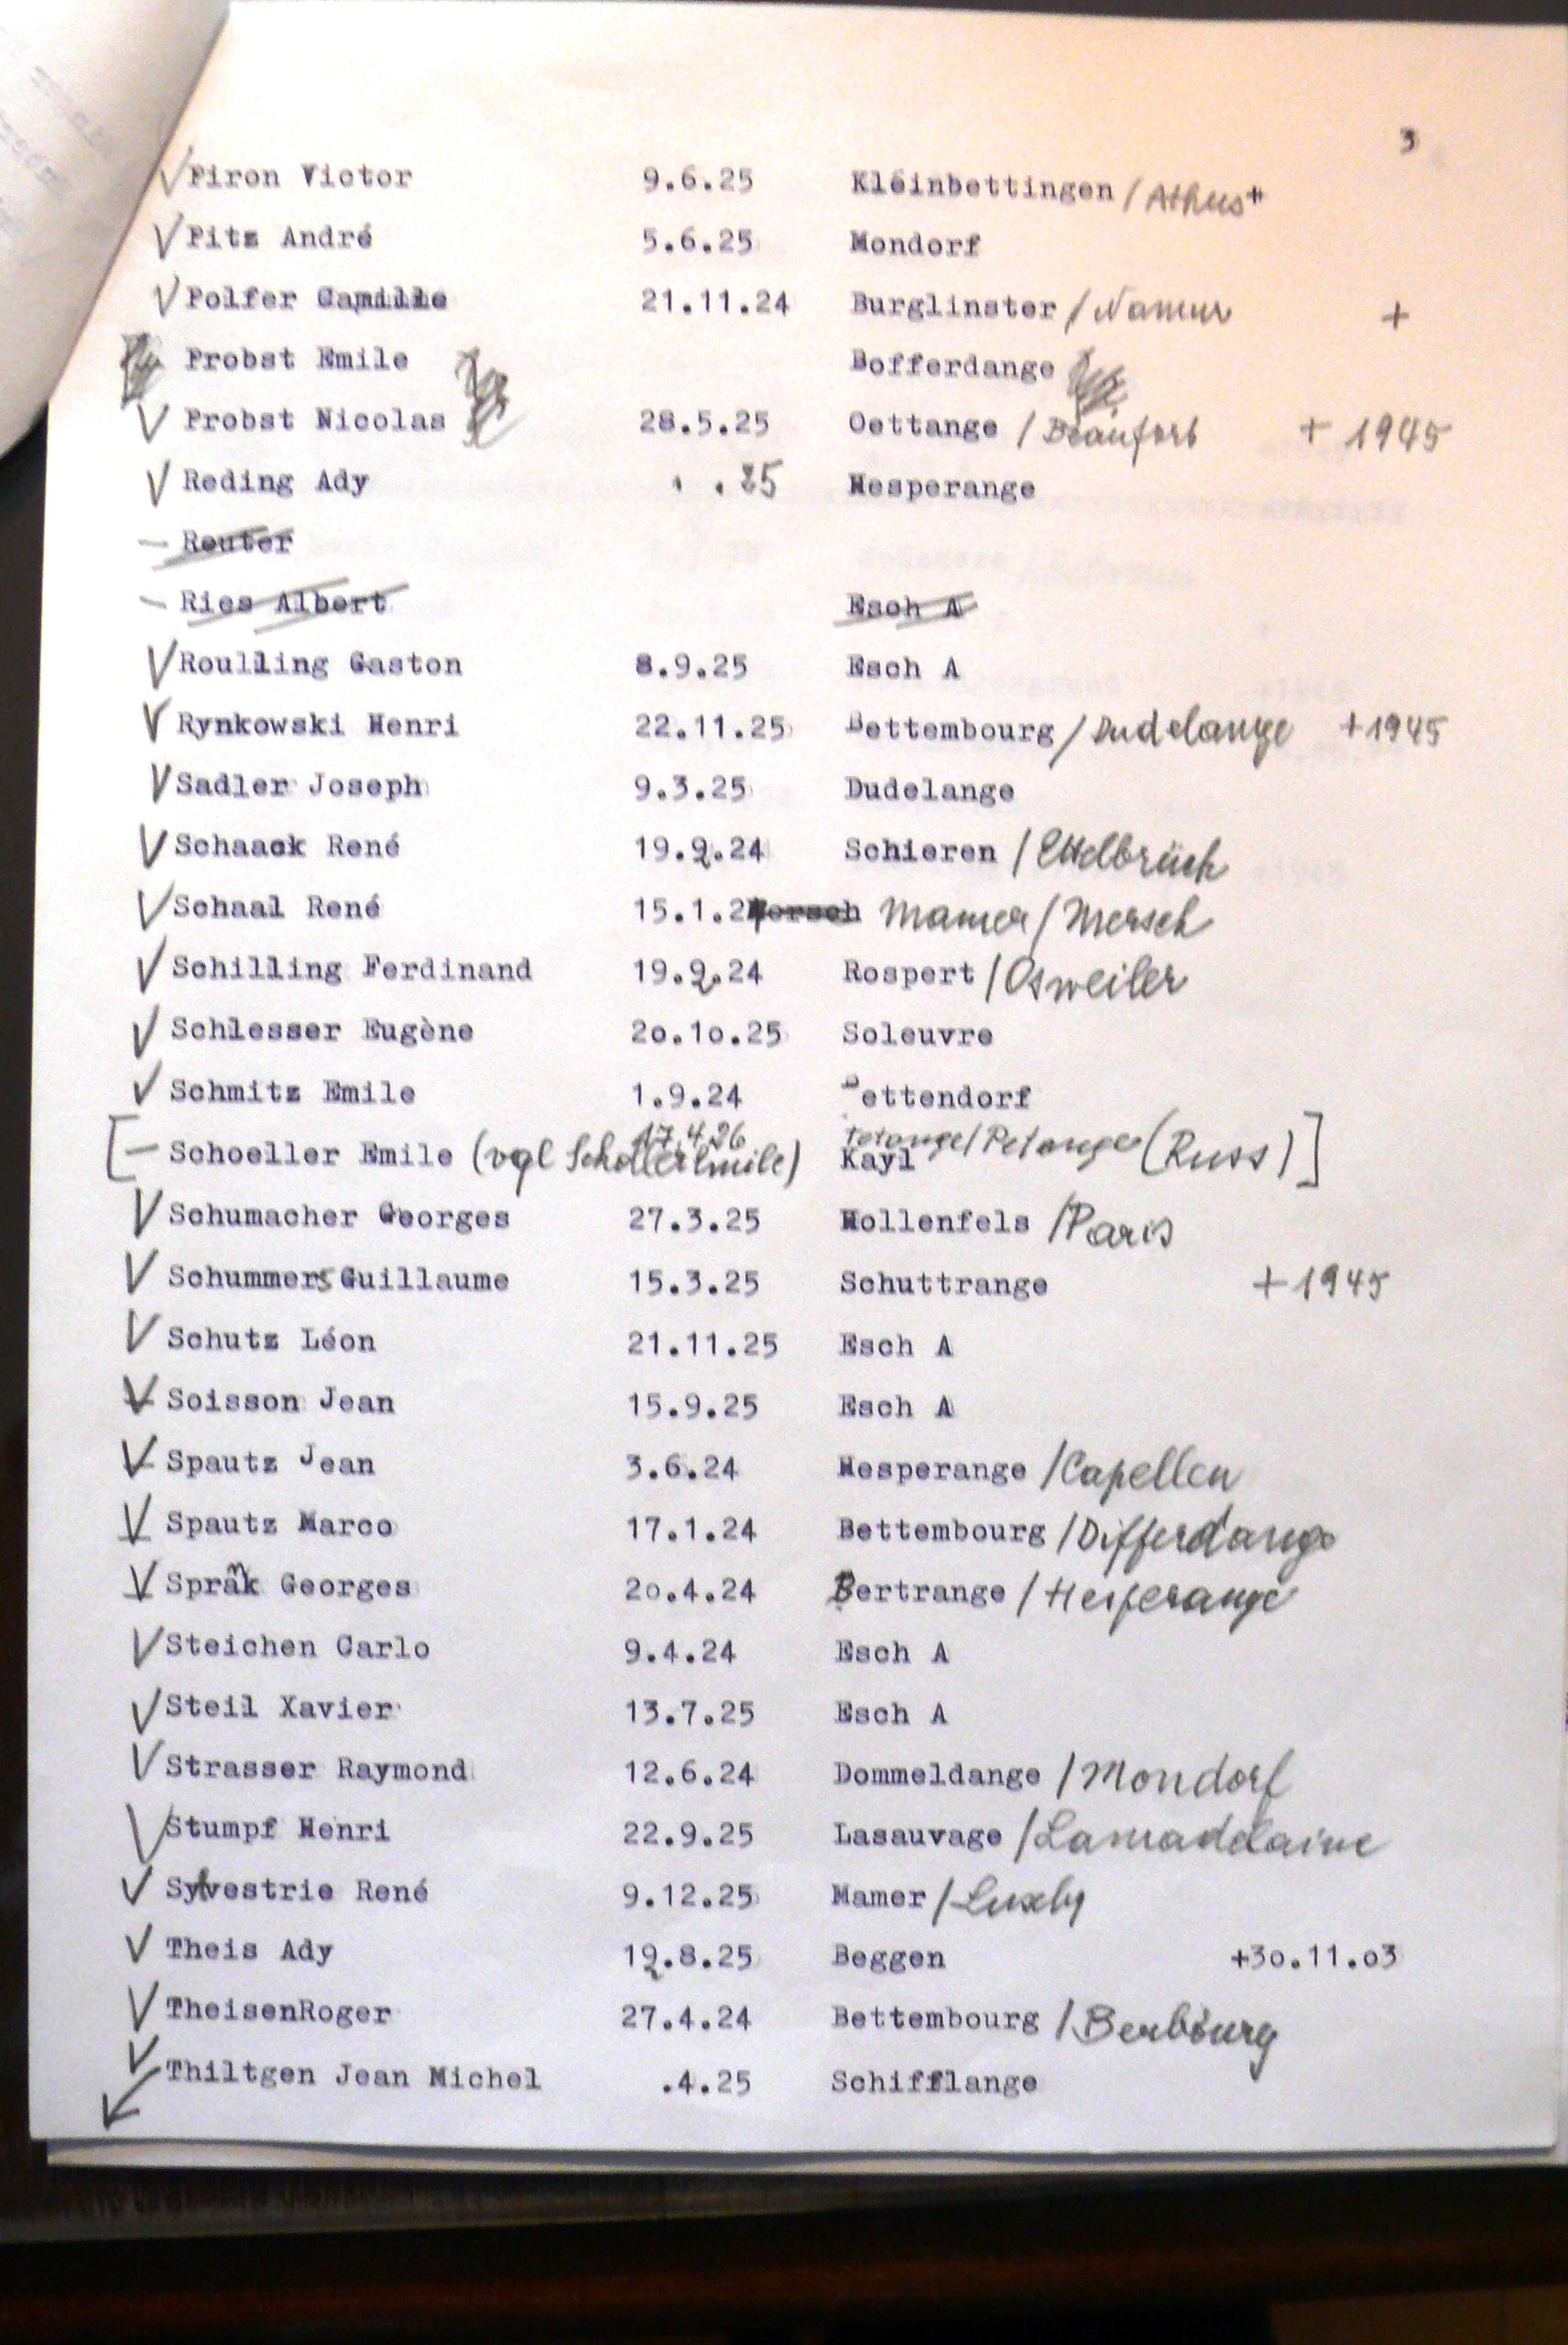 3
Piron Victor 9.6.25 Kleinbettingen / Athus +
Pitz André 5.6.25 Mondorf
Polfer Camille 21.11.24 Burglinster / Namur +
Probst Emile Bofferdange
Probst Nicolas 28.5.25 Oettange / Beaufort + 1945
Reding Ady . .25 Hesperange
Reuter
Ries Albert Esch A
Roulling Gaston 8.9.25 Esch A
Rynkowski Henri 22.11.25 Bettembourg / Dudelange +1945
Sadler Joseph 9.3.25 Dudelange
Schaack René 19.2.24 Schieren / Ettelbrück
Schaal René 15.1.24 Mersch Mamer / Mersch
Schilling Ferdinand 19.2.24 Rospert / Osweiler
Schlesser Eugène 2o.1o.25 Soleuvre
Schmitz Emile 1.9.24 Bettendorf
Schoeller Emile (vgl Scholler Emile) 17.4.26 Kayl Tetange / Petange (Russ)
Schumacher Georges 27.3.25 Hollenfels / Paris
Schummers Guillaume 15.3.25 Schuttrange + 1945
Schutz Léon 21.11.25 Esch A
Soisson Jean 15.9.25 Esch A
Spautz Jean 3.6.24 Hesperange / Capellen
Spautz Marco 17.1.24 Bettembourg / Differdange
Sprank Georges 2o.4.24 Bertrange / Hesperange
Steichen Carlo 9.4.24 Esch A
Steil Xavier 13.7.25 Esch A
Strasser Raymond 12.6.24 Dommeldange / Mondorf
Stumpf Henri 22.9.25 Lasauvage / Lamadelaine
Sylvestrie René 9.12.25 Mamer / Luxbg
Theis Ady 12.8.25 Beggen +3o.11.o3
TheisenRoger 27.4.24 Bettembourg / Berbourg
Thiltgen Jean Michel .4.25 Schifflange